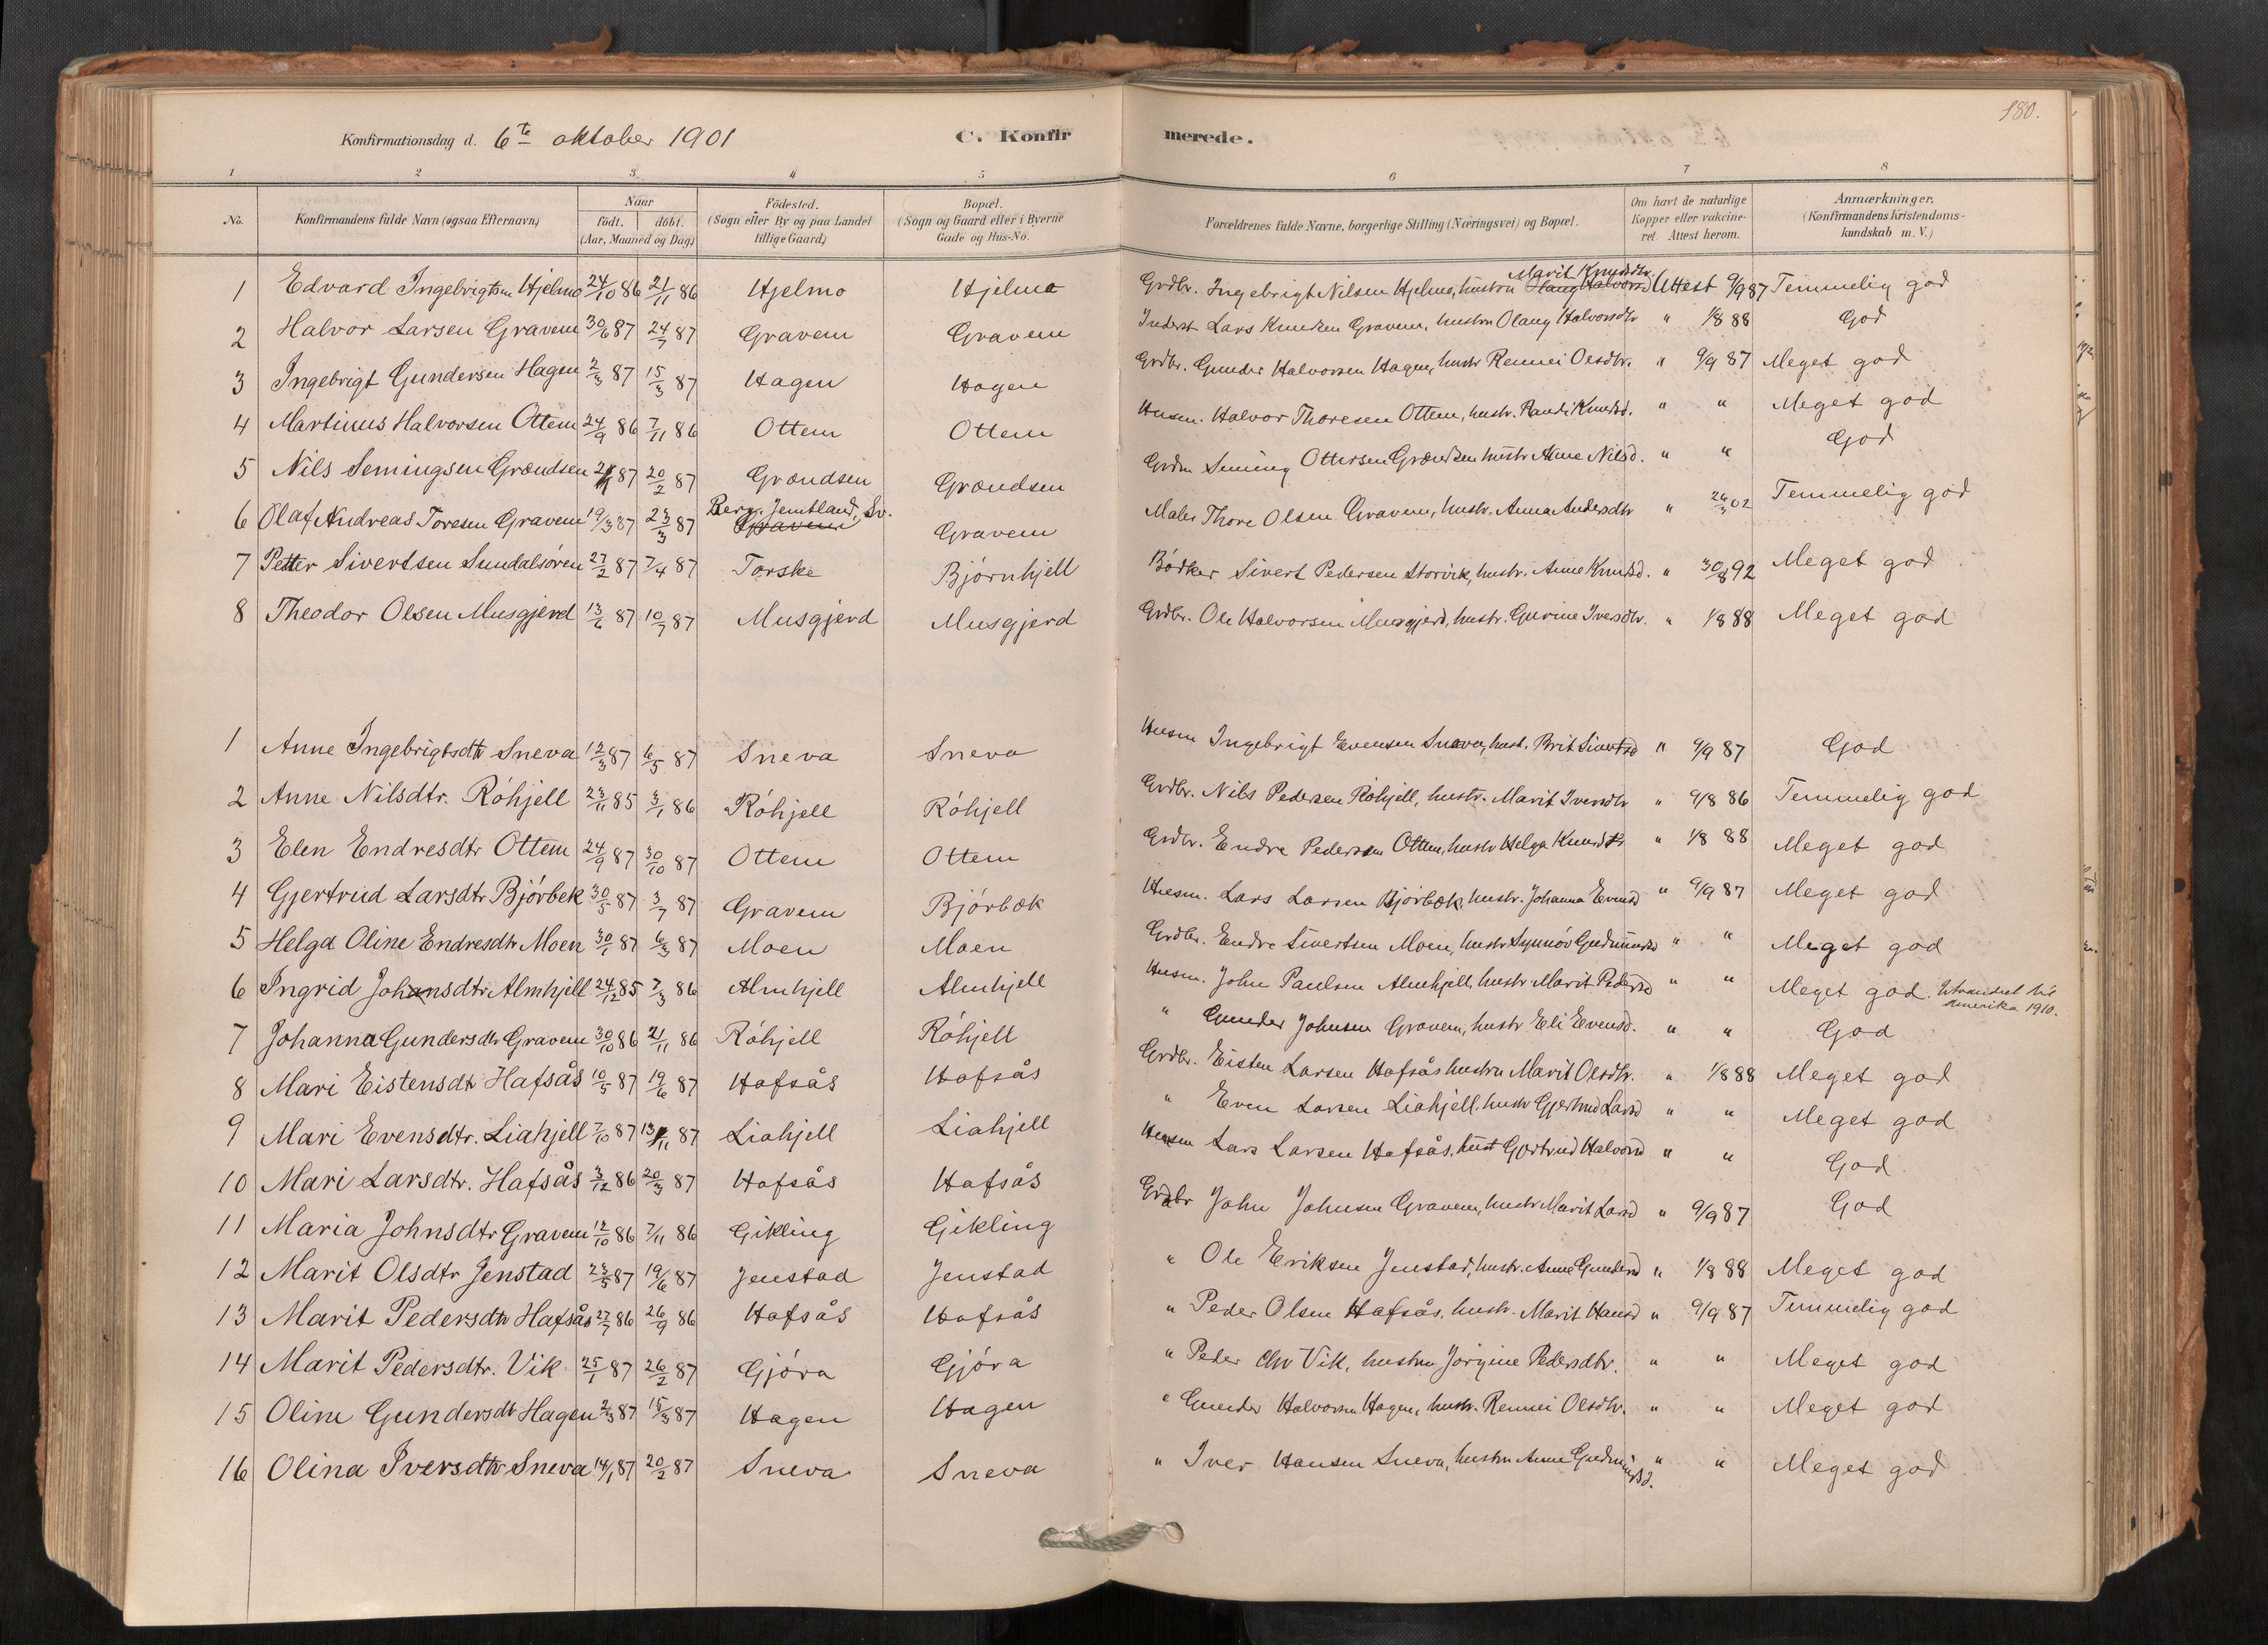 180.
Konfirmationsdag d. 6te oktober 1901 C. Konfirmerede.
1 2 3 4 5 6 7 8
No. Konfirmandens fulde Navn (ogsaa Efternavn) Naar født. døbt. (Aar, Maaned og Dag) Fødested. (Sogn eller By og paa Landet tillige Gaard) Bopæl. (Sogn og Gaard eller i Byerne Gade og Hus-No. Forældrenes fulde Navne, borgerlige Stilling (Næringsvei) og Bopæl. Om havt de naturlige Kopper eller vakcineret. Attest herom. Anmærkninger. (Konfirmandens Kristendomskundskab m. V.)
1 Edvard Ingebrigtsen Hjelmo 24/10 86 21/11 86 Hjelmo Hjelmo Grdbr. Ingebrigt Nilsen Hjelmo, hustru Marit Knudsdtr. Attest 9/9 87 Temmelig god
2 Halvor Larsen Gravem 30/6 87 24/7 87 Gravem Gravem Inderst Lars Knudsen Gravem, hustru Olaug Halvorsdtr " 1/8 88 God
3 Ingebrigt Gundersen Hagen 2/3 87 15/3 87 Hagen Hagen Grdbr. Gunder Halvorsen Hagen, hustr Rennei Olsdtr. " 9/9 87 Meget god
4 Martinus Halvorsen Ottem 24/9 86 7/11 86 Ottem Ottem Husm. Halvor Thoresen Ottem, hustr. Randi Knudsd. " " Meget god
5 Nils Semingsen Grændsen 87 20/2 87 Grændsen Grændsen Seming Ottersen Grændsen hustr Anne Nilsd. " " God
6 Olaf Andreas Toresen Gravem 19/3 87 23/3 87 Berg, Jemtland, Sv. Gravem Gravem Maler Thore Olsen Gravem, hustr. Anna Andersdtr " 02 Temmelig god
7 Petter Sivertsen Sundalsøren 27/2 87 7/4 87 Torske Bjørnhjell Bødker Sivert Pedersen Storvik, hustr. Anne Knudsd. " 30/8 92 Meget god
8 Theodor Olsen Musgjerd 13/6 87 10/7 87 Musgjerd Musgjerd Grdbr. Ole Halvorsen Musgjerd, hustr. Gurine Iversdtr. " 1/8 88 Meget god
1 Anne Ingebrigtsdtr Sneva 12/3 87 6/5 87 Sneva Sneva Husm Ingebrigt Evensen Sneva, hust. Brit Sivertsd " 9/9 87 God
2 Anne Nilsdtr. Róhjell 23/11 85 3/1 86 Róhjell Róhjell Grdbr. Nils Pedersen Róhjell, hustr. Marit Iversdtr " 9/8 86 Temmelig god
3 Elen Endresdtr Ottem 24/9 87 30/10 87 Ottem Ottem Grdbr. Endre Pedersen Ottem, hustr Helga Knudsdtr " 1/8 88 Meget god
4 Gjertrud Larsdtr Bjórbek 30/5 87 3/7 87 Gravem Bjórbæk Husm. Lars Larsen Bjórbæk, hustr. Johanna Evensd " 9/9 87 Meget god
5 Helga Oline Endresdtr Moen 30/1 87 6/3 87 Moen Moen Grdbr. Endre Sivertsen Moen, hustr Synnóv Gudmundsd " " Meget god
6 Ingrid Johansdtr. Almhjell 24/12 85 7/3 86 Almhjell Almhjell Husm. John Paulsen Almhjell, hustr Marit Pedersd " " Meget god. Utvandret til Amerika 1910.
7 Johanna Gundersdtr Gravem 30/10 86 21/11 86 Róhjell Róhjell " Gunder Johnsen Gravem, hustr Eli Evensd. " " God
8 Mari Eistensdtr Hafsås 10/5 87 19/6 87 Hafsås Hafsås Grdbr. Eisten Larsen Hafsås hustru Marit Olsdtr. " 1/8 88 Meget god
9 Mari Evensdtr. Liahjell 7/10 87 13/11 87 Liahjell Liahjell " Even Larsen Liahjell, hustr Gjertrud Larsd " " Meget god
10 Mari Larsdtr. Hafsås 3/12 86 20/3 87 Hafsås Hafsås Husm Lars Larsen Hafsås, hust Gjertrud Halvorsd " " God
11 Maria Johnsdtr Gravem 12/10 86 7/11 86 Gikling Gikling Grdbr John Johnsen Gravem, hustr Marit Larsd " 9/9 87 God
12 Marit Olsdtr Jenstad 23/5 87 19/6 87 Jenstad Jenstad " Ole Eriksen Jenstad, hustr. Anne Gundersd " 1/8 88 Meget god
13 Marit Pedersdtr Hafsås 27/7 86 26/9 86 Hafsås Hafsås " Peder Olsen Hafsås, hustr. Marit Hansd " 9/9 87 Temmelig god
14 Marit Pedersdtr. Vik 25/1 87 26/2 87 Gjóra Gjóra " Peder Vik, hustru Jorgine Pedersdtr. " " Meget god
15 Oline Gundersdtr Hagen 2/3 87 15/3 87 Hagen Hagen " Gunder Halvorsen Hagen, hustr. Rennei Olsdtr. " " Meget god
16 Olina Iversdtr Sneva 14/1 87 20/2 87 Sneva Sneva " Iver Hansen Sneva, hustru Anne Gudmundsd. " " Meget god